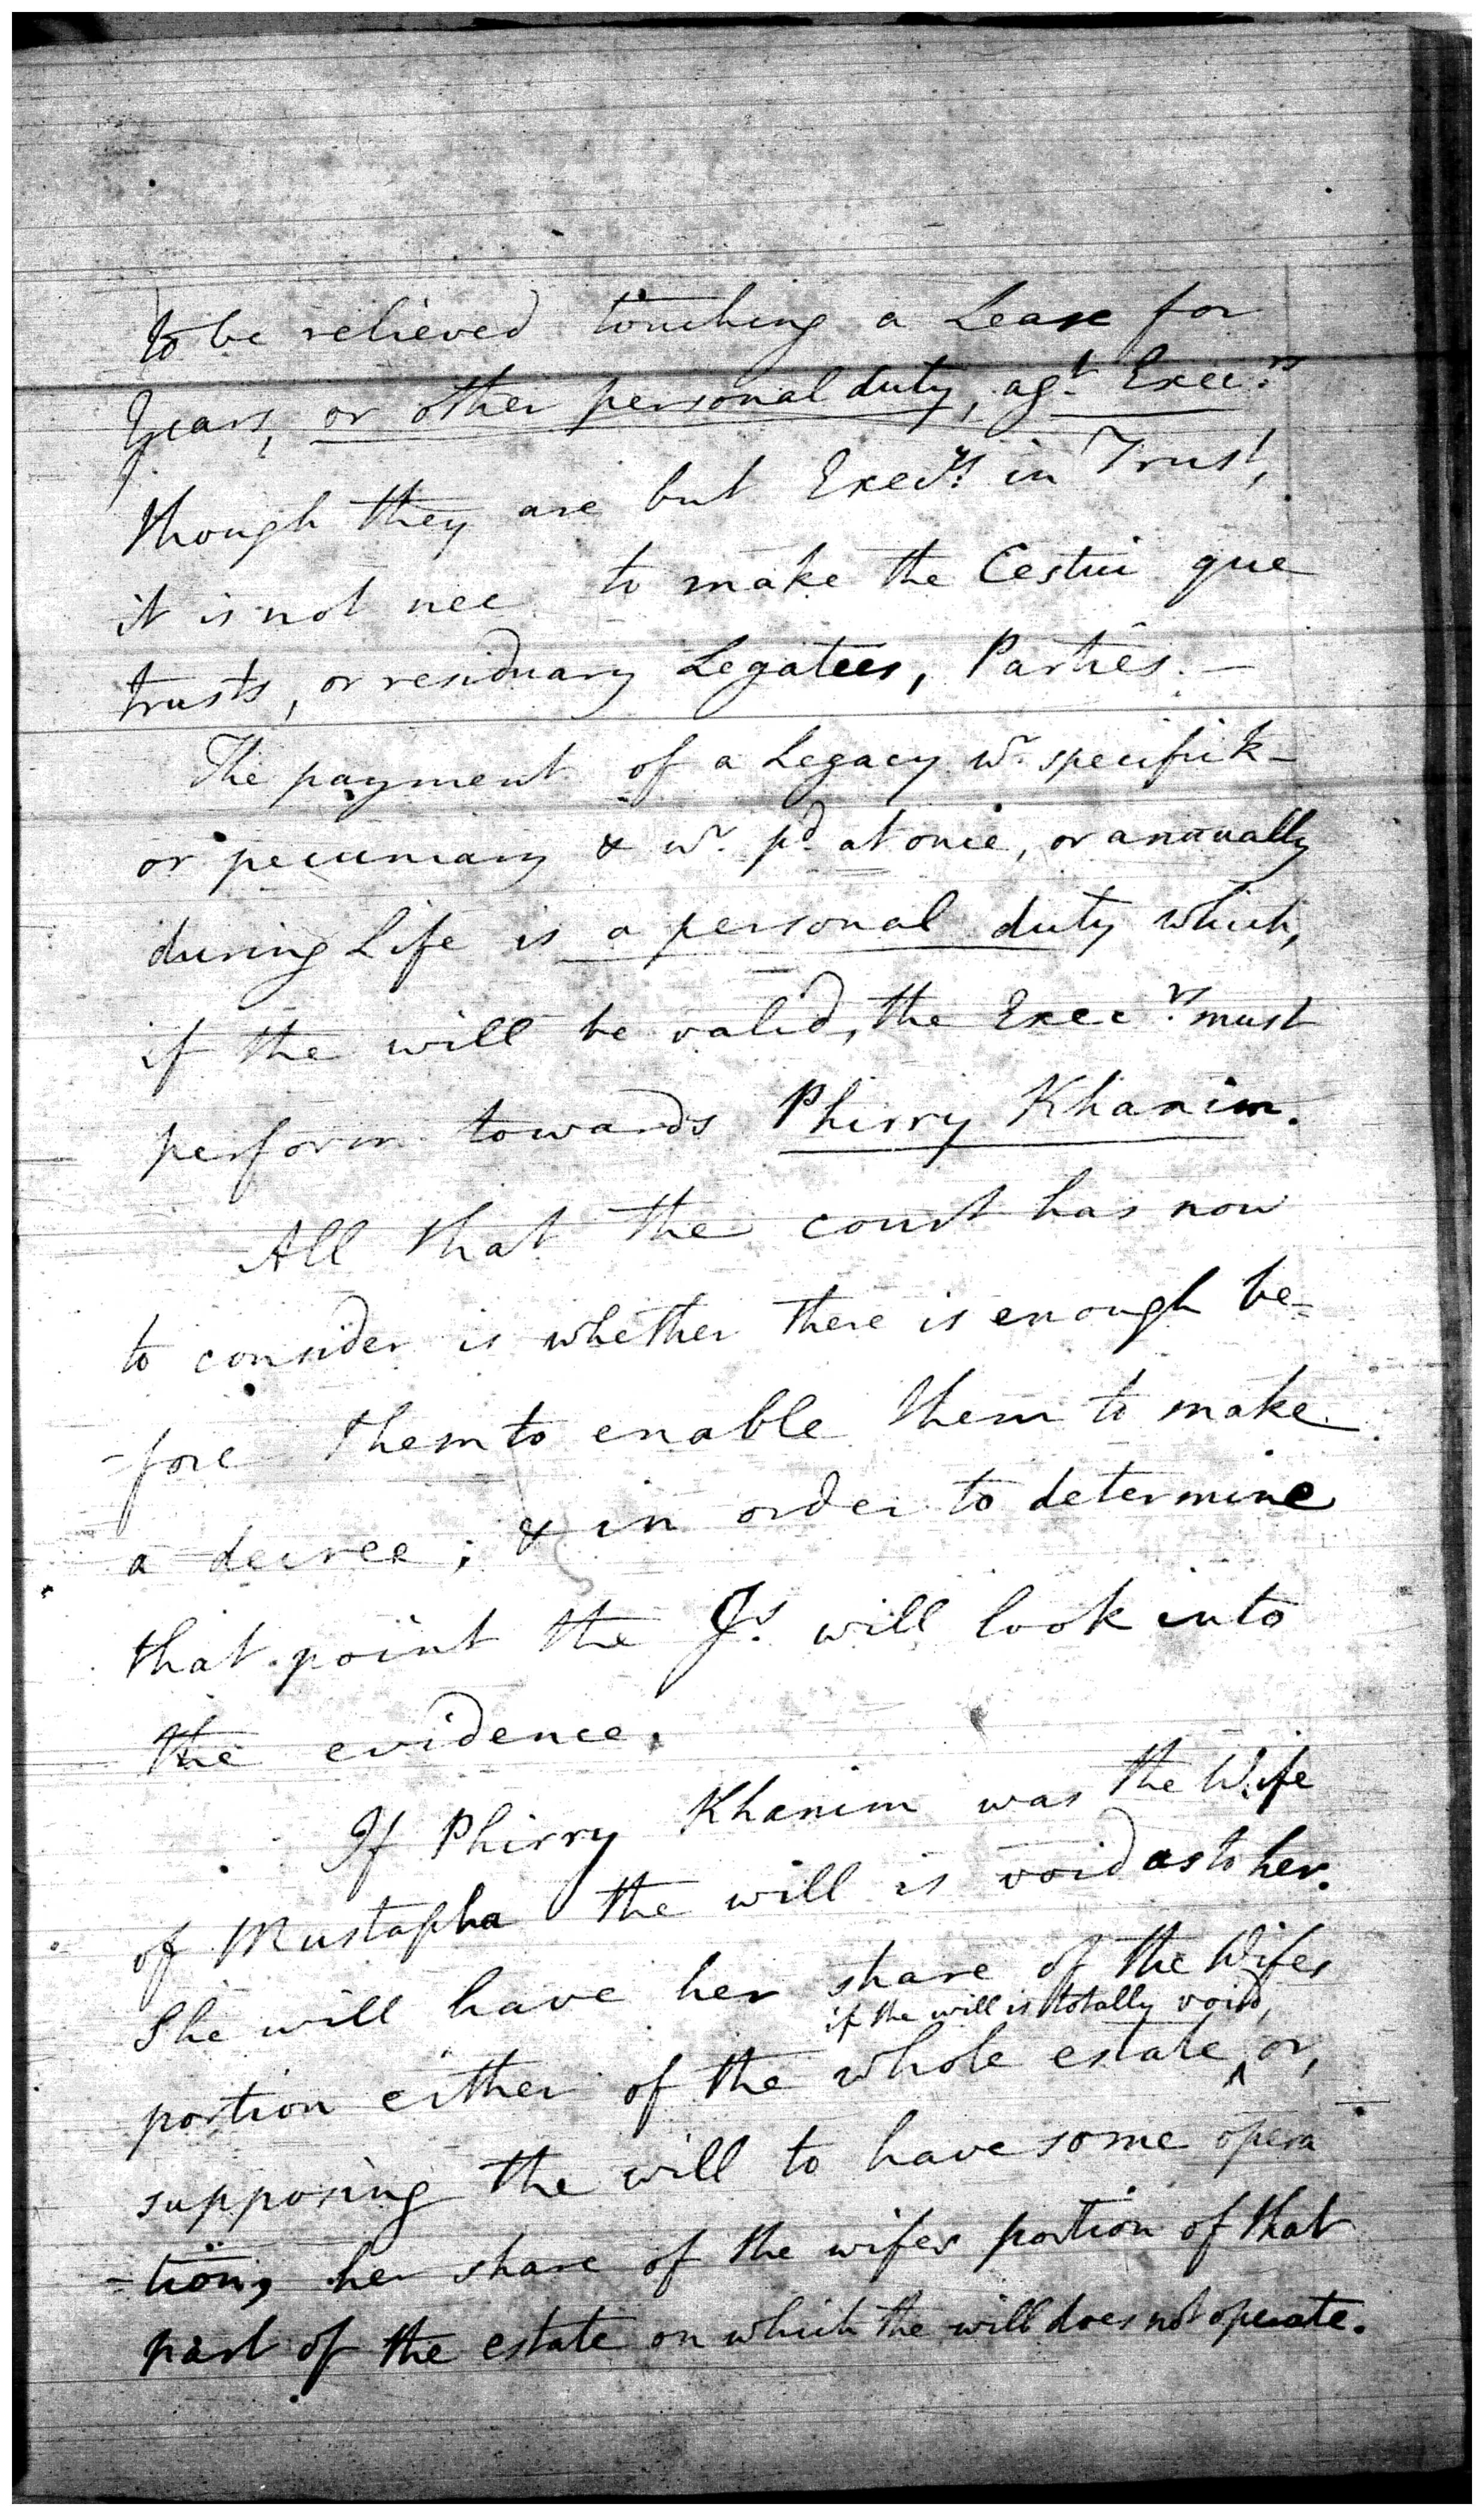 to be relieved touching a Lease for
years, or other personal duty, agt. Execrs.
though they are but Execrs. in Trust,
it is not nec to make the Cestui que
trusts, or residuary Legatees, Parties.—
The payment of a Legacy wr. specifick
or pecuniary & wr. pd. at once, or annually
during Life is a personal duty which,
if the will be valid, the Execrs. must
perform towards Phirry Khanim.
All that the court has now
to consider is whether there is enough be=
-fore them to enable them to make
a decree; & in order to determine
that point the Js. will look into
the evidence.
If Phirry Khanim was the Wife
of Mustapha the will is void as to her.
She will have her share of the Wifes
if the will is totally void,
portion either of the whole estate ‸ or,
supposing the will to have some opera
-tion, her share of the wifes portion of that
part of the estate on which the will does not operate.